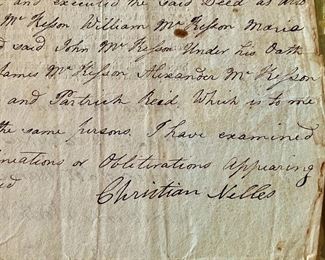 and executed the said Deed as
Mc Kesson William Mc Kesson Maria
said John Mc Kesson Under his Oath
James Mc Kesson Alexander Mc Kesson
and Partrick Reid, Which is to me
the same persons. I have examined
or Obliterations Appearing
Christian Nelles